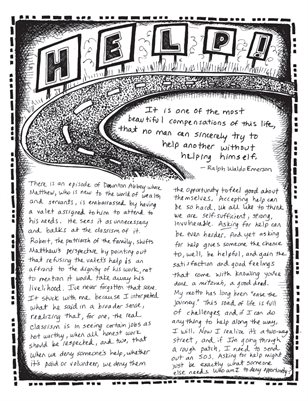 HELP!
It is one of the most
beautiful compensations of this life,
that no man can sincerely try to
help another without
helping himself.
— Ralph Waldo Emerson
There is an episode of Downton Abbey where
Matthew, who is new to the world of wealth
and servants, is embarrassed by having
a valet assigned to him to attend to
his needs. He sees it as unnecessary
and balks at the classism of it.
Robert, the patriarch of the family, shifts
Matthew's perspective by pointing out
that refusing the valet's help is an
affront to the dignity of his work, not
to mention it would take away his
livelihood. I've never forgotten that scene.
It stuck with me because I interpreted
what he said in a broader sense,
realizing that, for one, the real
classism is in seeing certain jobs as
not worthy, when all honest work
should be respected, and, two, that
when we deny someone's help, whether
it's paid or volunteer, we deny them
the opportunity to feel good about
themselves. Accepting help can
be so hard. We all like to think
we are self-sufficient, strong,
invulnerable. Asking for help can
be even harder. And yet asking
for help gives someone the chance
to, well, be helpful, and gain the
satisfaction and good feelings
that come with knowing you've
done a mitzvah, a good deed.
My motto has long been "ease the
journey." This road of life is full
of challenges, and if I can do
anything to help along the way,
I will. Now I realize it's a two-way
street, and if I'm going through
a rough patch, I need to send
out an SOS. Asking for help might
just be exactly what someone
else needs. Who am I to deny opportunity?